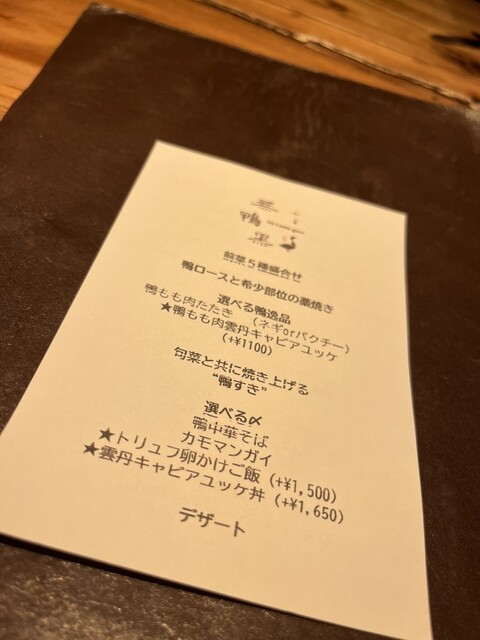 鴨
前菜５種盛合せ
鴨ロースと希少部位の藁焼き
選べる鴨逸品
鴨もも肉たたき （ネギorパクチー）
★鴨もも肉雲丹キャビアユッケ
(+¥1100)
旬菜と共に焼き上げる
“鴨すき”
選べる〆
鴨中華そば
カモマンガイ
★トリュフ卵かけご飯 (+¥1,500)
★雲丹キャビアユッケ丼 (+¥1,650)
デザート